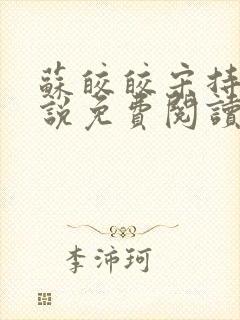 蘇皎皎宋持
說免費閱讀
李沛珂